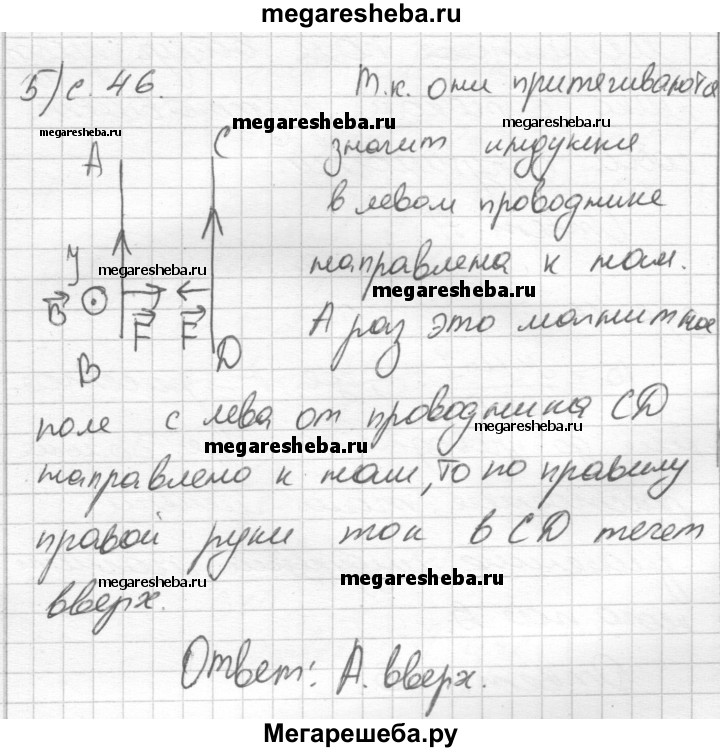 megaresheba.ru
5) с. 46. Т.к. они притягиваются
megaresheba.ru megaresheba.ru
A C значит индукция
в левом проводнике
J megaresheba.ru направлена к нам.
B megaresheba.ru
F F А раз это магнитное
B D
поле с лева от проводника CD
megaresheba.ru megaresheba.ru
направлено к нам, то по правилу
правой руки ток в CD течет
megaresheba.ru megaresheba.ru
вверх.
Ответ: А. вверх.
Мегарешеба.ру